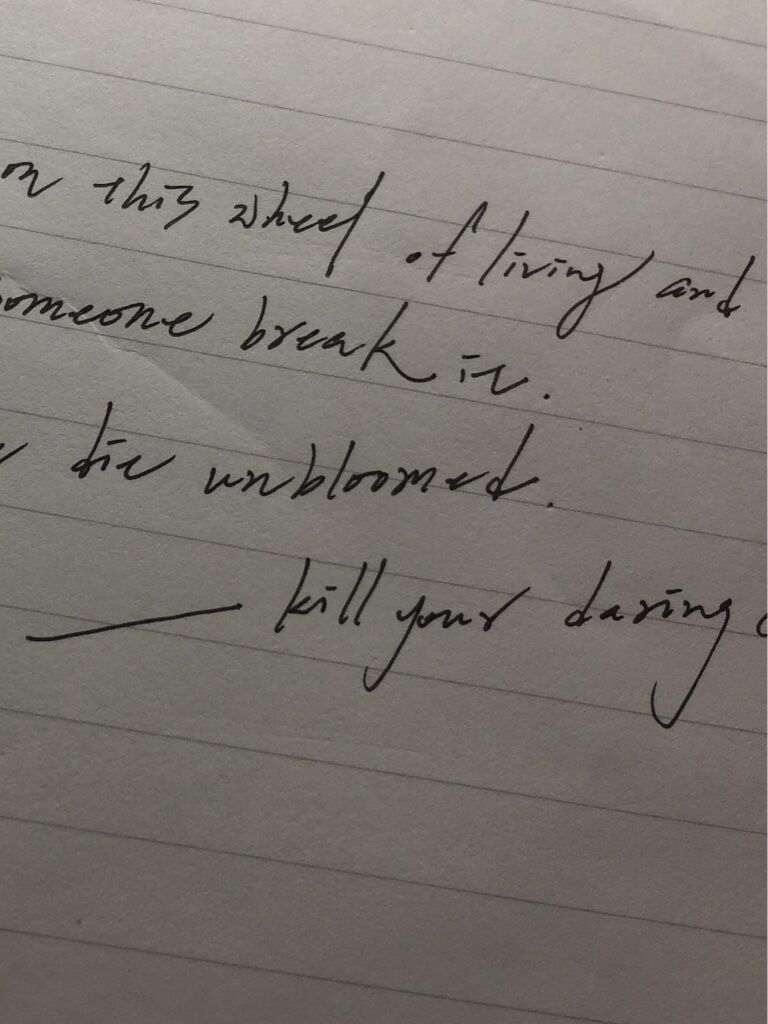 on this wheel of living and
someone break it.
die unbloomed.
— kill your daring